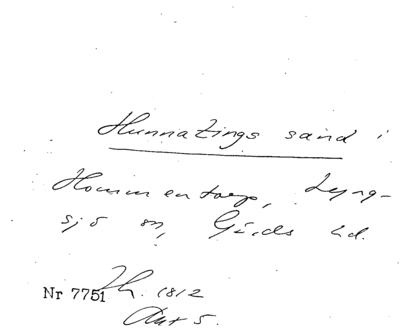 Hunnatings sand i
Hommentorp, Lyng-
sjö sn, Gärds hd.
Nr 7751 Th. 1812
Aut 5.